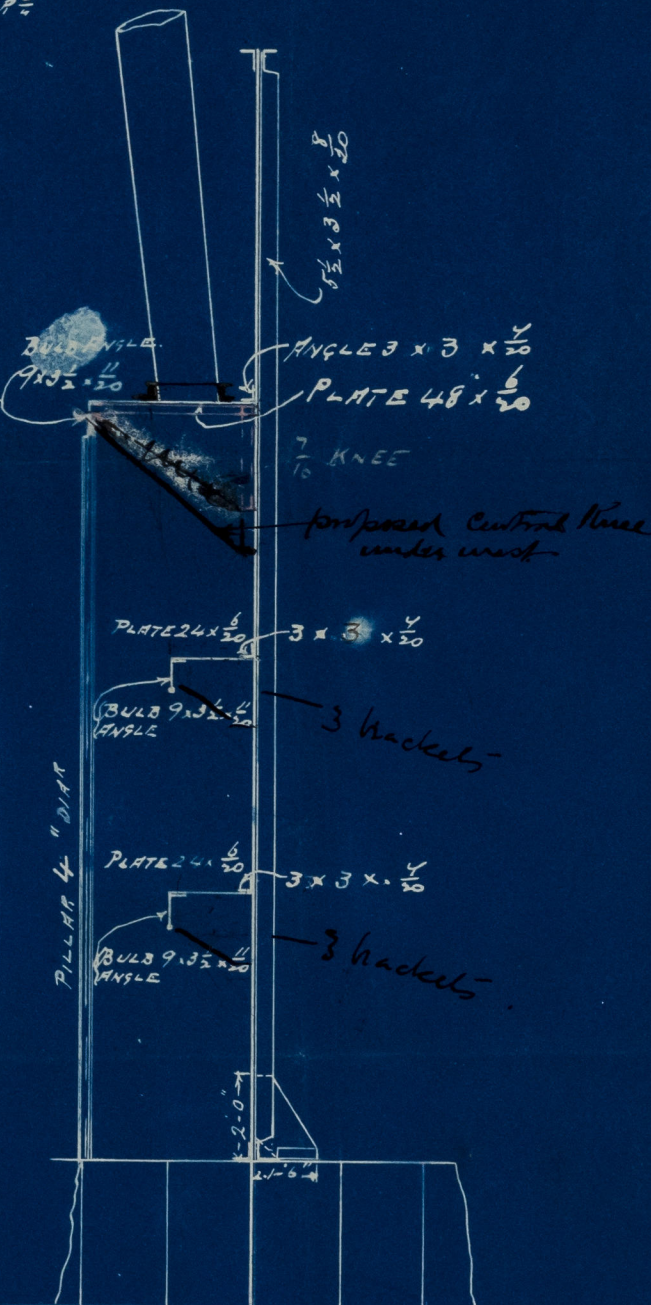 5½ × 3½ × 8/20
BULB ANGLE.
9 × 3½ × 11/20
ANGLE 3 × 3 × 7/20
PLATE 48" × 6/20
7/16 KNEE
proposed Central Knee
under
PLATE 24 × 6/20
3 × 3 × 7/20
BULB 9 × 3½ × 11/20
ANGLE
3 brackets
PILLAR 4" DIAR
PLATE 24 × 6/20
3 × 3 × 7/20
BULB 9 × 3½ × 11/20
ANGLE
3 brackets.
2'-0"
1'-6"